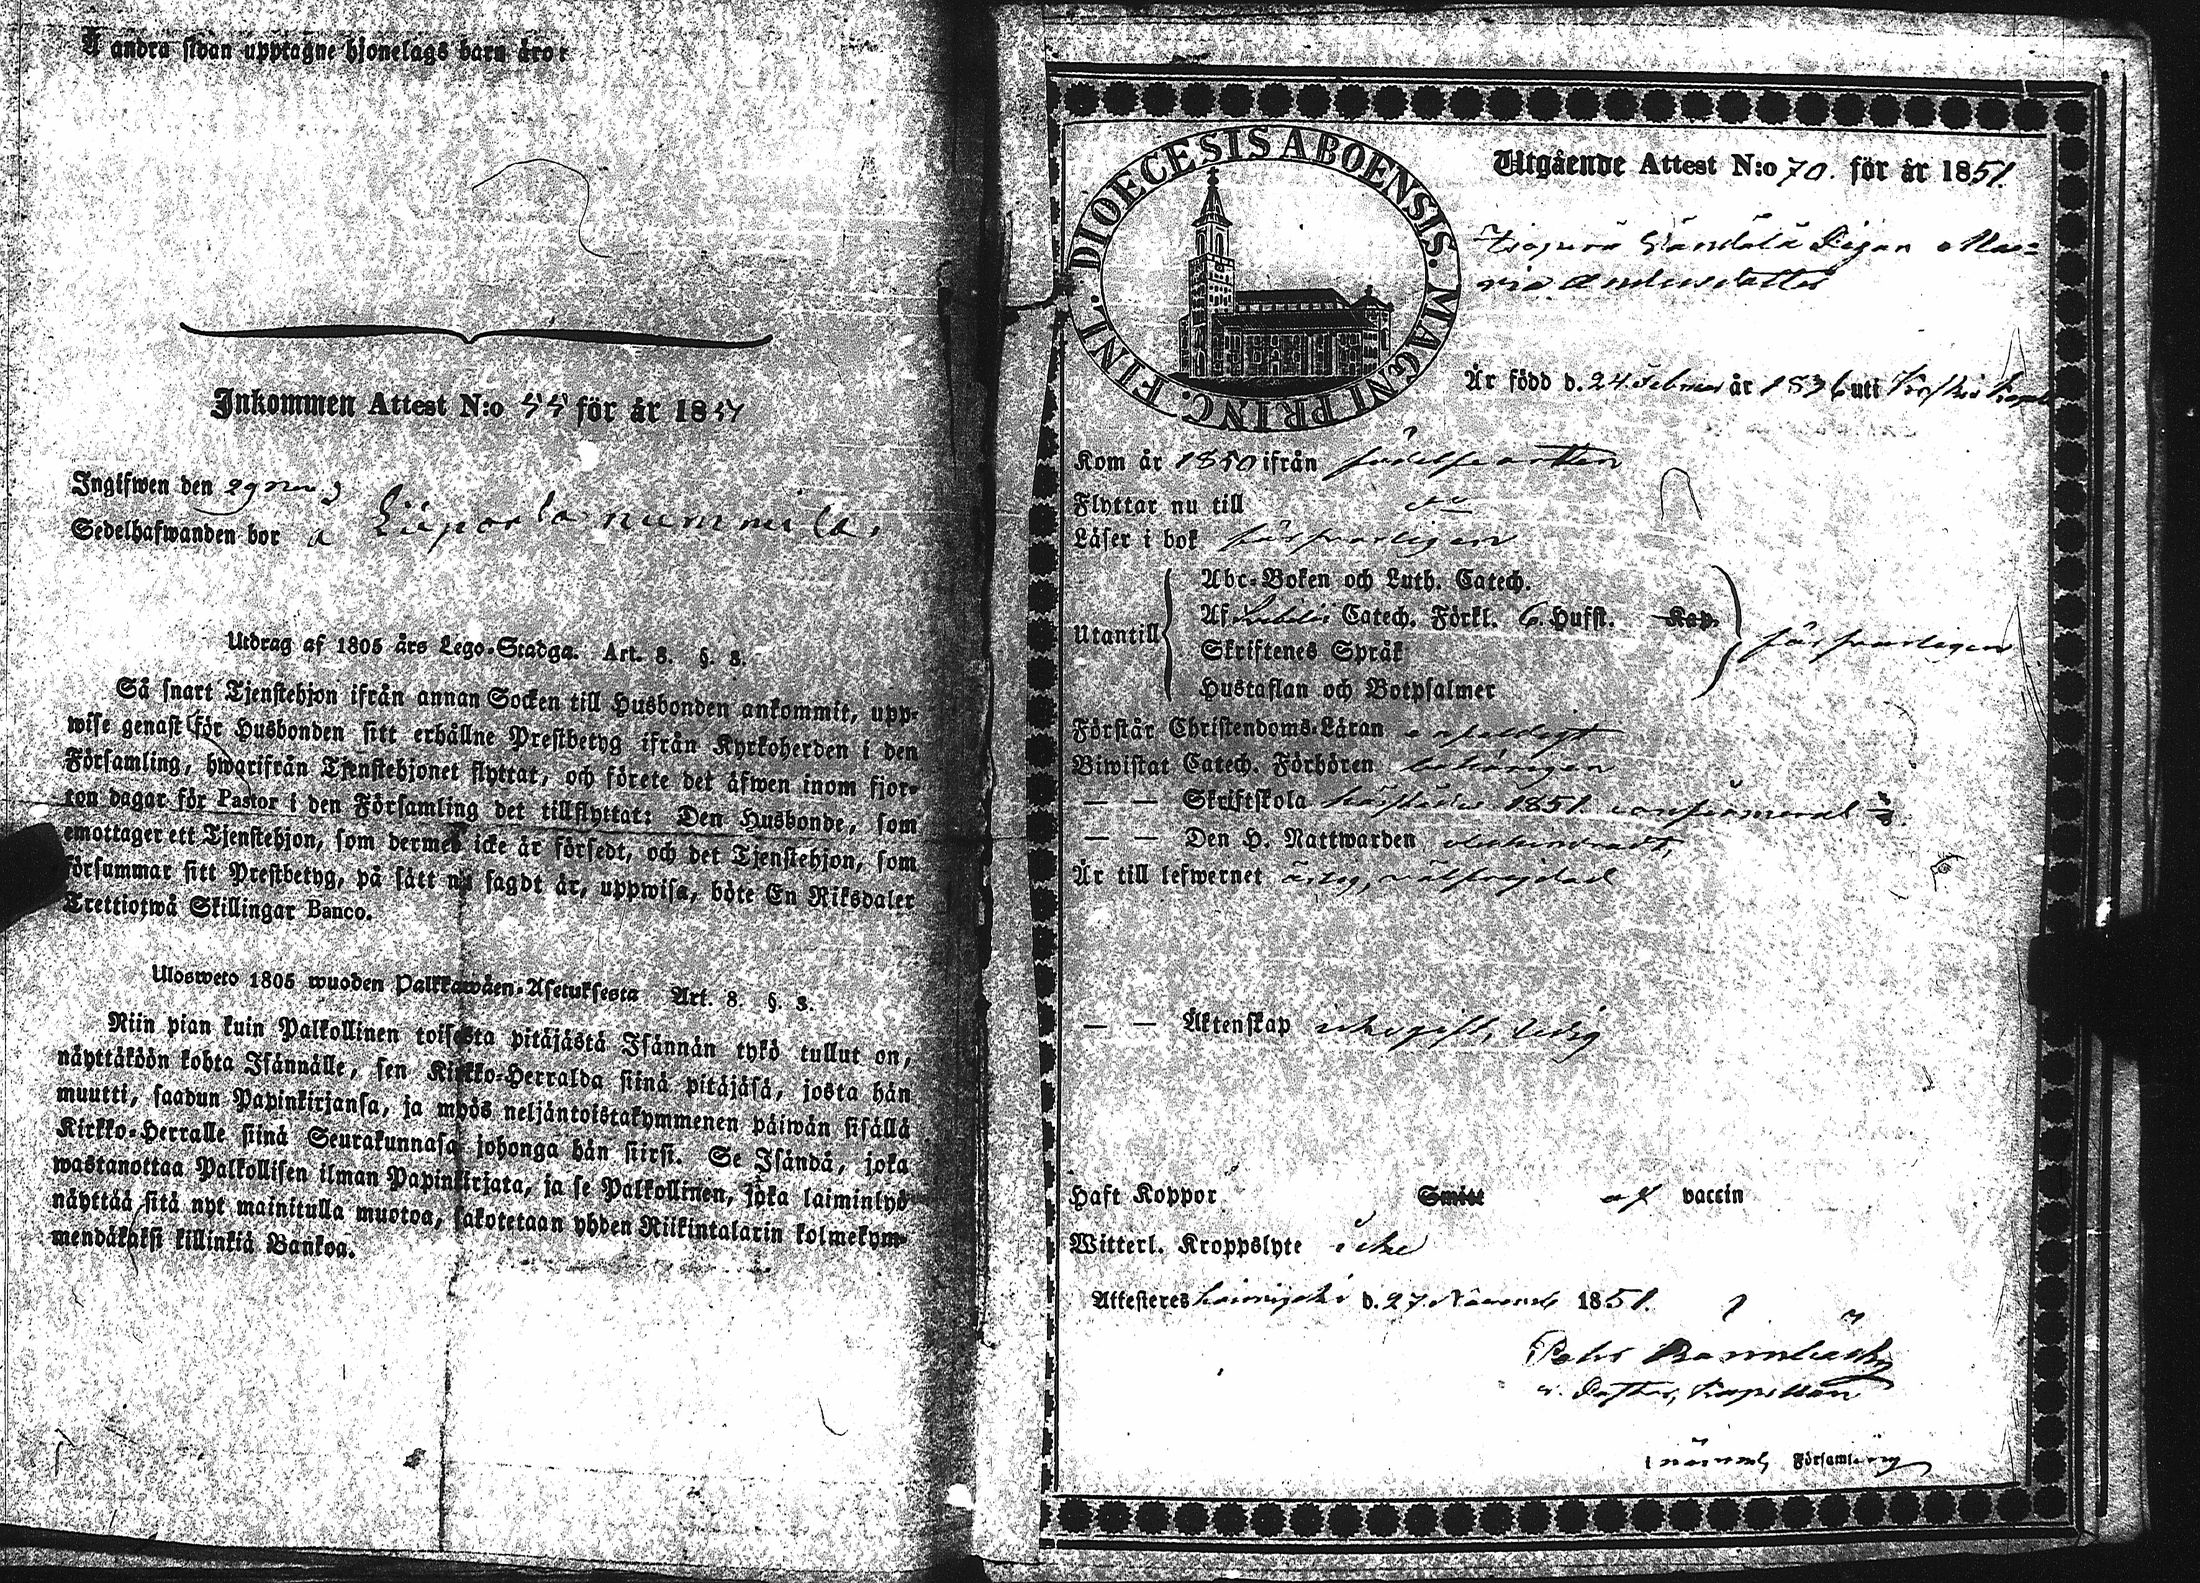 Å andra sidan upptagne hjonelags barn äro:
Inkommen Attest N:o 55 för år 18
Ingifwen den 29 Nov
Sedelhafwanden bor å nummila.
Utdrag af 1805 års Lego-Stadga. Art. 8. §. 3.
Så snart Tjenstehjon ifrån annan Socken till Husbonden ankommit, upp-
wise genast för Husbonden sitt erhållne Prestbetyg ifrån Kyrkoherden i den
Församling, hwarifrån Tjenstehjonet flyttat, och förete det äfwen inom fjor-
ton dagar för Pastor i den Församling det tillflyttat: Den Husbonde, som
emottager ett Tjenstehjon, som dermed icke är försedt, och det Tjenstehjon, som
försummar sitt Prestbetyg, på sätt nu sagdt är, uppwisa, böte En Riksdaler
Trettiotwå Skillingar Banco.
Ulosweto 1805 wuoden Palkkawäen-Asetuksesta Art. 8. §. 3.
Niin pian kuin Palkollinen toisesta pitäjästä Isännän tykö tullut on,
näyttäköön kohta Isännälle, sen Kirkko-Herralda siinä pitäjäsä, josta hän
muutti, saadun Papinkirjansa, ja myös neljäntoistakymmenen päiwän sisällä
Kirkko-Herralle siinä Seurakunnasa johonga hän siirsi. Se Isändä, joka
wastanottaa Palkollisen ilman Papinkirjata, ja se Palkollinen, joka laiminlyö
näyttää sitä nyt mainitulla muotoa, sakotetaan yhden Riikintalarin kolmekym-
mendäkaksi killinkiä Bankoa.
DIOECESIS ABOENSIS. MAGNI PRINC. FINL.
Utgående Attest N:o 70. för år 1851.
Pigan Ma-
ria Andersdotter
Är född d. 24 Februar år 1836 uti
Kom år 1850 ifrån födelseorten
Flyttar nu till do
Läser i bok försvarligen
Utantill
Abc-Boken och Luth. Catech.
Af Catech. Förkl. 6. Hufst. Kap.
Skriftenes Språk
Hustaflan och Botpsalmer
försvarligen
Förstår Christendoms-Läran enfaldigt
Biwistat Catech. Förhören behörigen
— — Skriftskola 1851. confirmerad
— — Den H. Nattwarden
Är till lefwernet ärlig, välfrejdad
— — Äktenskap ogift, ledig
Haft Koppor Smitt af vaccin
Witterl. Kroppslyte Icke
Attesteras d. 27 Novemb 1851.
Petr
v. Pastor, Kapellan
Församling